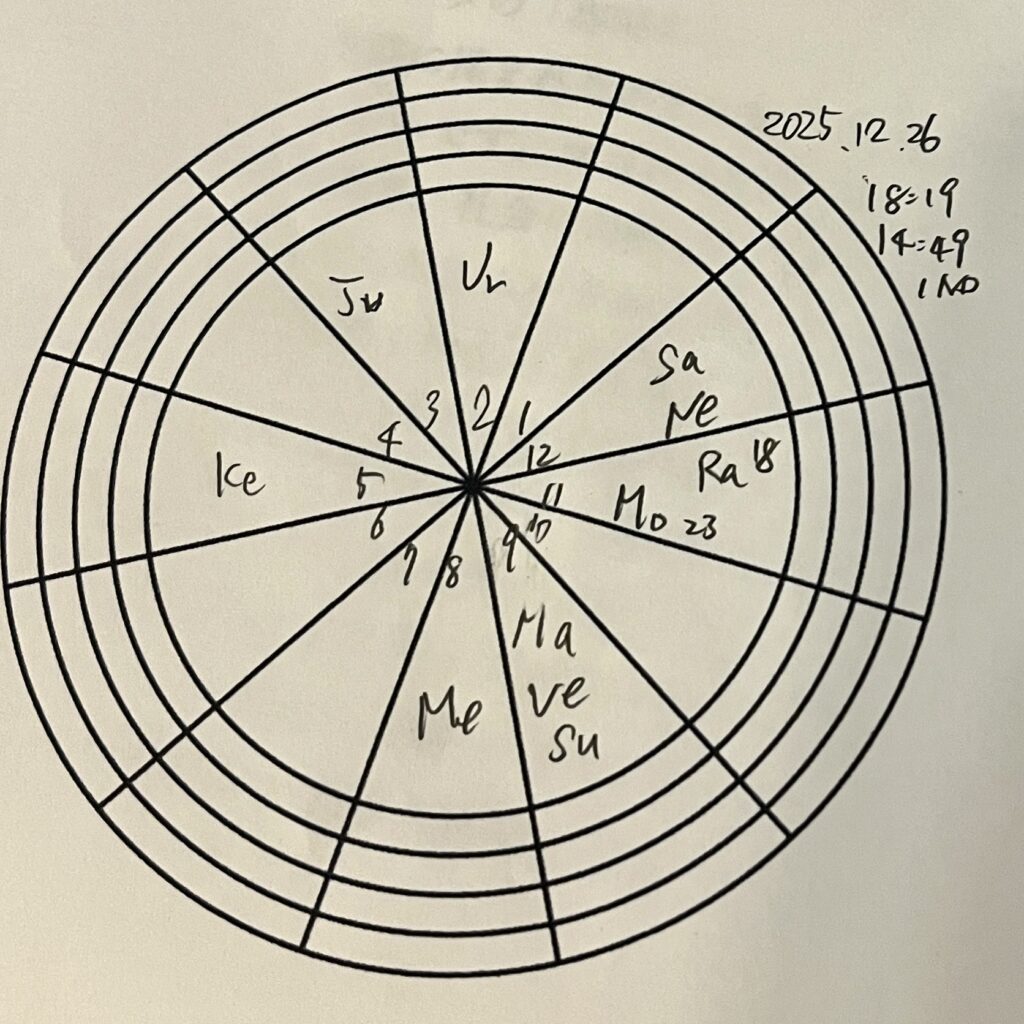 2025.12.26
18:19
14:49
IND
Ju
Ur
Sa
Ne
3 2 1
4
12
Ke
5
11
Ra 18
Mo 23
6
10
7 8 9
Ma
Me
Ve
Su